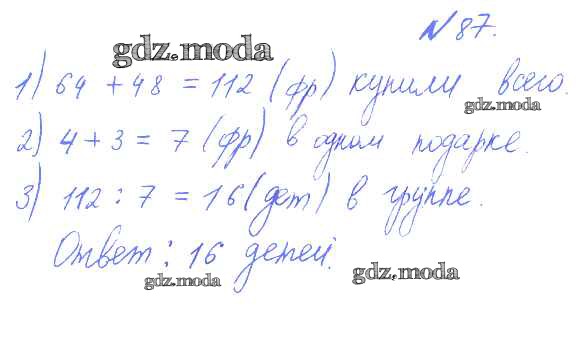 № 87.
gdz.moda
1) 64 + 48 = 112 (фр) купили всего.
gdz.moda
2) 4 + 3 = 7 (фр) в одном подарке.
3) 112 : 7 = 16 (дет) в группе.
Ответ: 16 детей.
gdz.moda gdz.moda